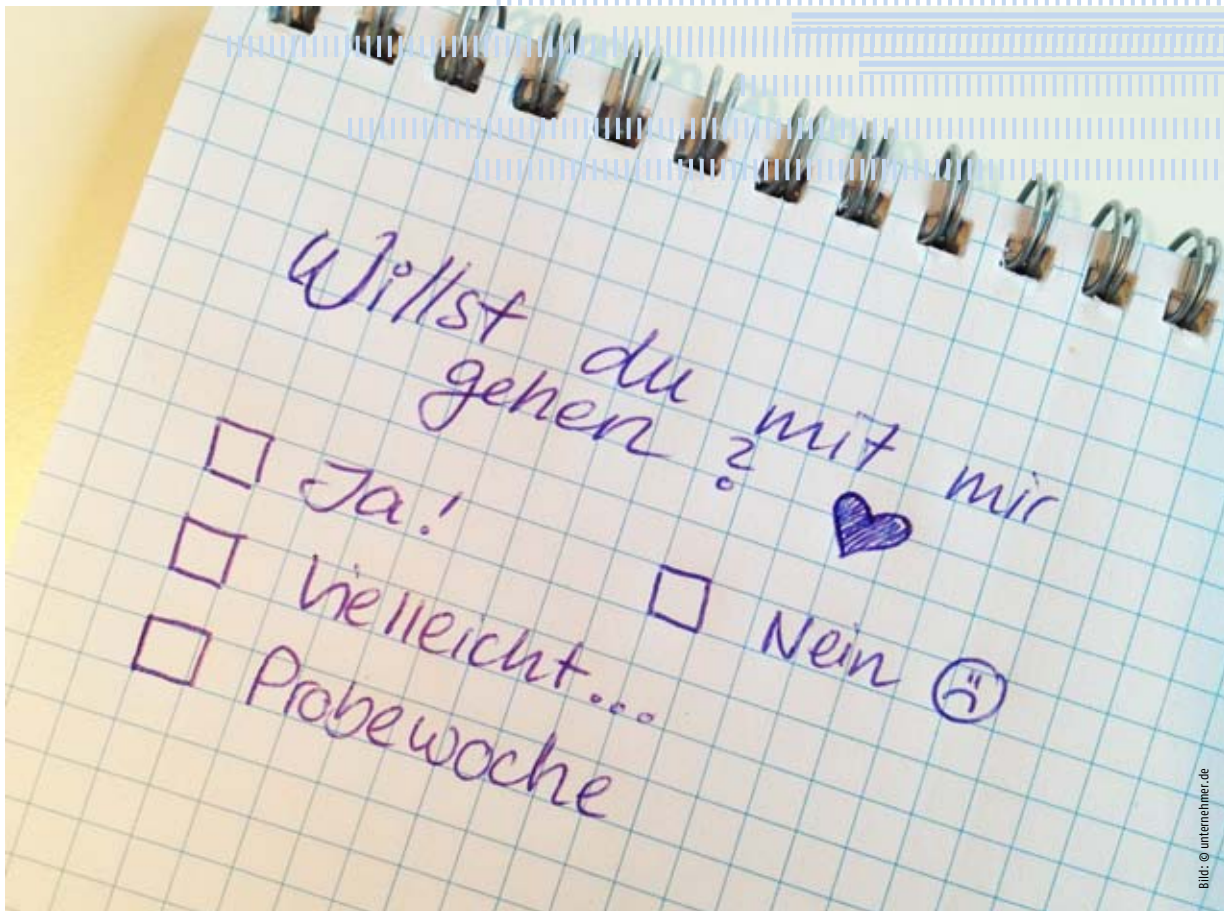 Willst du mit mir
gehen?
Ja!
Vielleicht...
Nein
Probewoche
Bild: © unternehmer.de